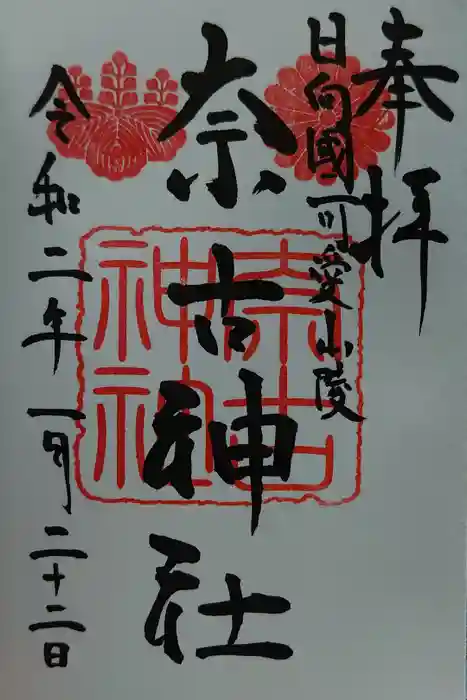 奉拝
日向國可愛山陵
奈古神社
令和二年一月二十二日
奈古
神社